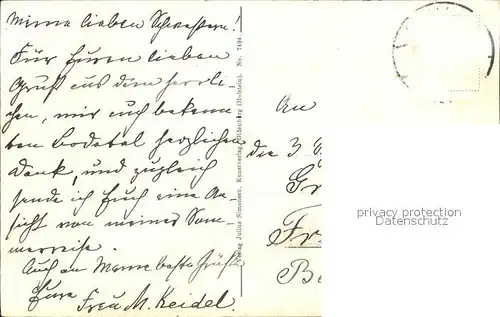 Meine lieben Schwestern!
Für Euren lieben
Gruß aus dem herrli-
chen, mir auch bekann-
ten Bodetal herzlichen
Dank, und zugleich
sende ich Euch eine An-
sicht von meiner Som-
merreise.
Auch an Mama beste Grüße
Eure
Frau M. Keidel.
Verlag Julius Simonsen, Kunstverlag, Oldenburg (Holstein). No. 7494.
An
die 3
privacy protection
Datenschutz